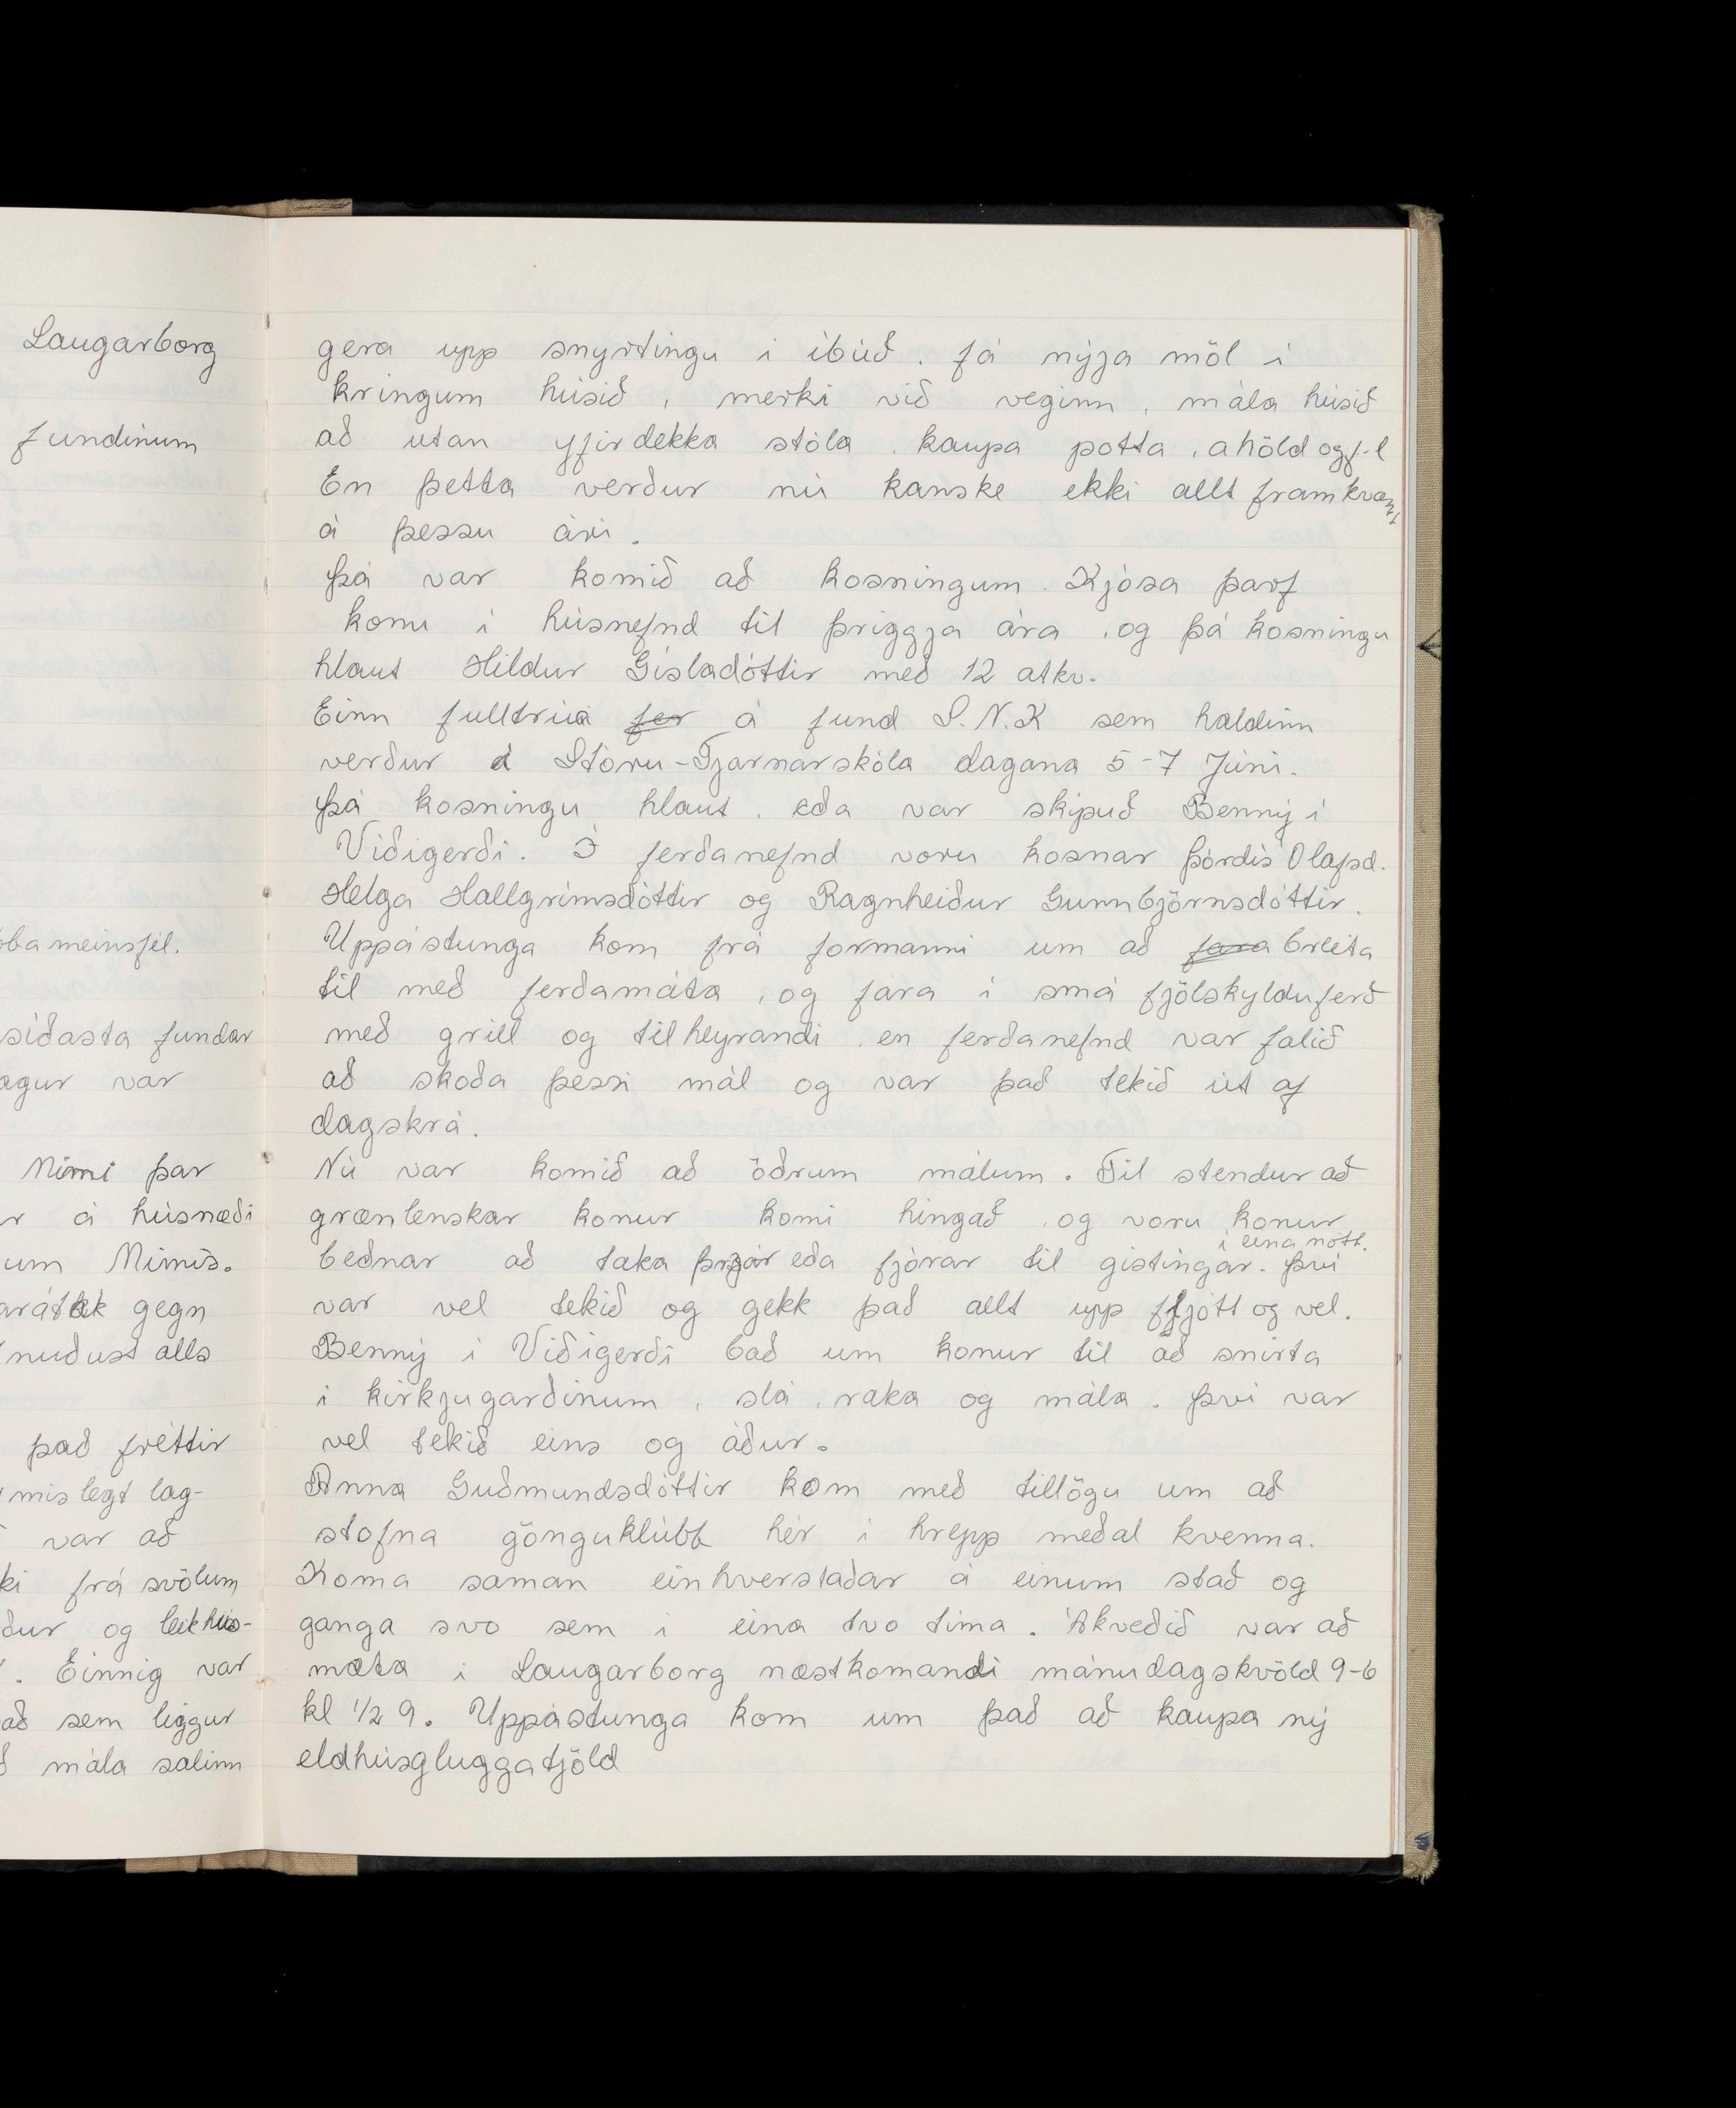 Laugarborg
fundinum
síðasta fundar
var
Mími þar
á húsnæði
um Mímis.
gegn
alls
það fréttir
lag-
var að
frá svölum
og leikhús-
. Einnig var
sem liggur
mála salinn
gera upp snyrtingu í íbúð. fá nýja möl í
kringum húsið, merki við veginn, mála húsið
að utan yfirdekka stóla, kaupa potta, ahöld ogf-l
En þetta verður nú kanske ekki allt framkvæmt
á þessu ári.
Þá var komið að kosningum. Kjósa þarf
konu í húsnefnd til þriggja ára, og þá kosningu
hlaut Hildur Gísladóttir með 12 atkv.
Einn fulltrúa fer á fund S.N.K sem haldinn
verður á Stóru-Tjarnarskóla dagana 5-7 Júní.
Þá kosningu hlaut, eða var skipuð Benný í
Víðigerði. Í ferðanefnd voru kosnar Þórdís Olafsd.
Helga Hallgrímsdóttir og Ragnheiður Gunnbjörnsdóttir.
Uppástunga kom frá formanni um að fara breita
til með ferðamáta, og fara í smá fjölskylduferð
með grill og tilheyrandi, en ferðanefnd var falið
að skoða þessi mál og var það tekið út af
dagskrá.
Nú var komið að öðrum málum. Til stendur að
grænlenskar konur komi hingað, og voru konur
í eina nótt.
beðnar að taka þrjár eða fjórar til gistingar. Því
var vel tekið og gekk það allt upp fljótt og vel.
Benný í Víðigerði bað um konur til að snirta
í kirkjugarðinum, slá, raka og mála. Því var
vel tekið eins og áður.
Anna Guðmundsdóttir kom með tillögu um að
stofna gönguklúbb hér í hrepp meðal kvenna.
Koma saman einhverstaðar á einum stað og
ganga svo sem í eina tvo tíma. Ákveðið var að
mæta í Laugarborg næstkomandi mánudagskvöld 9-6
kl 1/2 9. Uppástunga kom um það að kaupa ný
eldhúsgluggatjöld